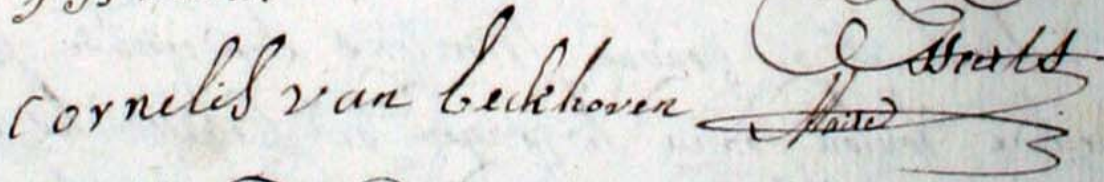 cornelis van beckhoven
Maire